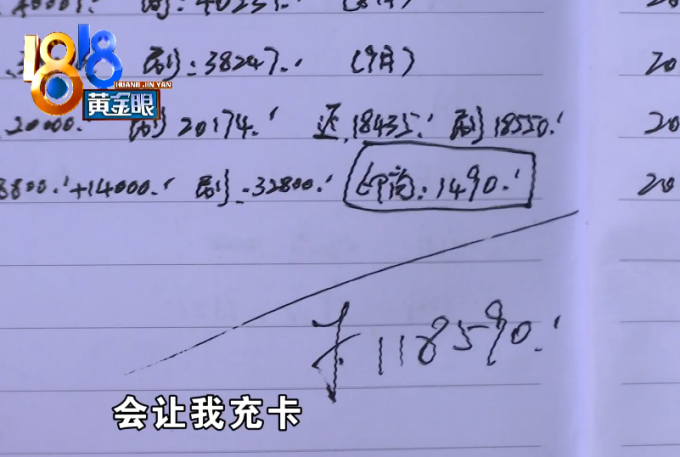 40235.'
1818
HUANG JIN YAN
黄金眼
刷:38247.' (9月)
20
20000.' 刷 20174.' 还 18435.' 刷 18550.'
20
8800.'+14000.' 刷.32800.' 1490.'
20
118590.'
会让我充卡